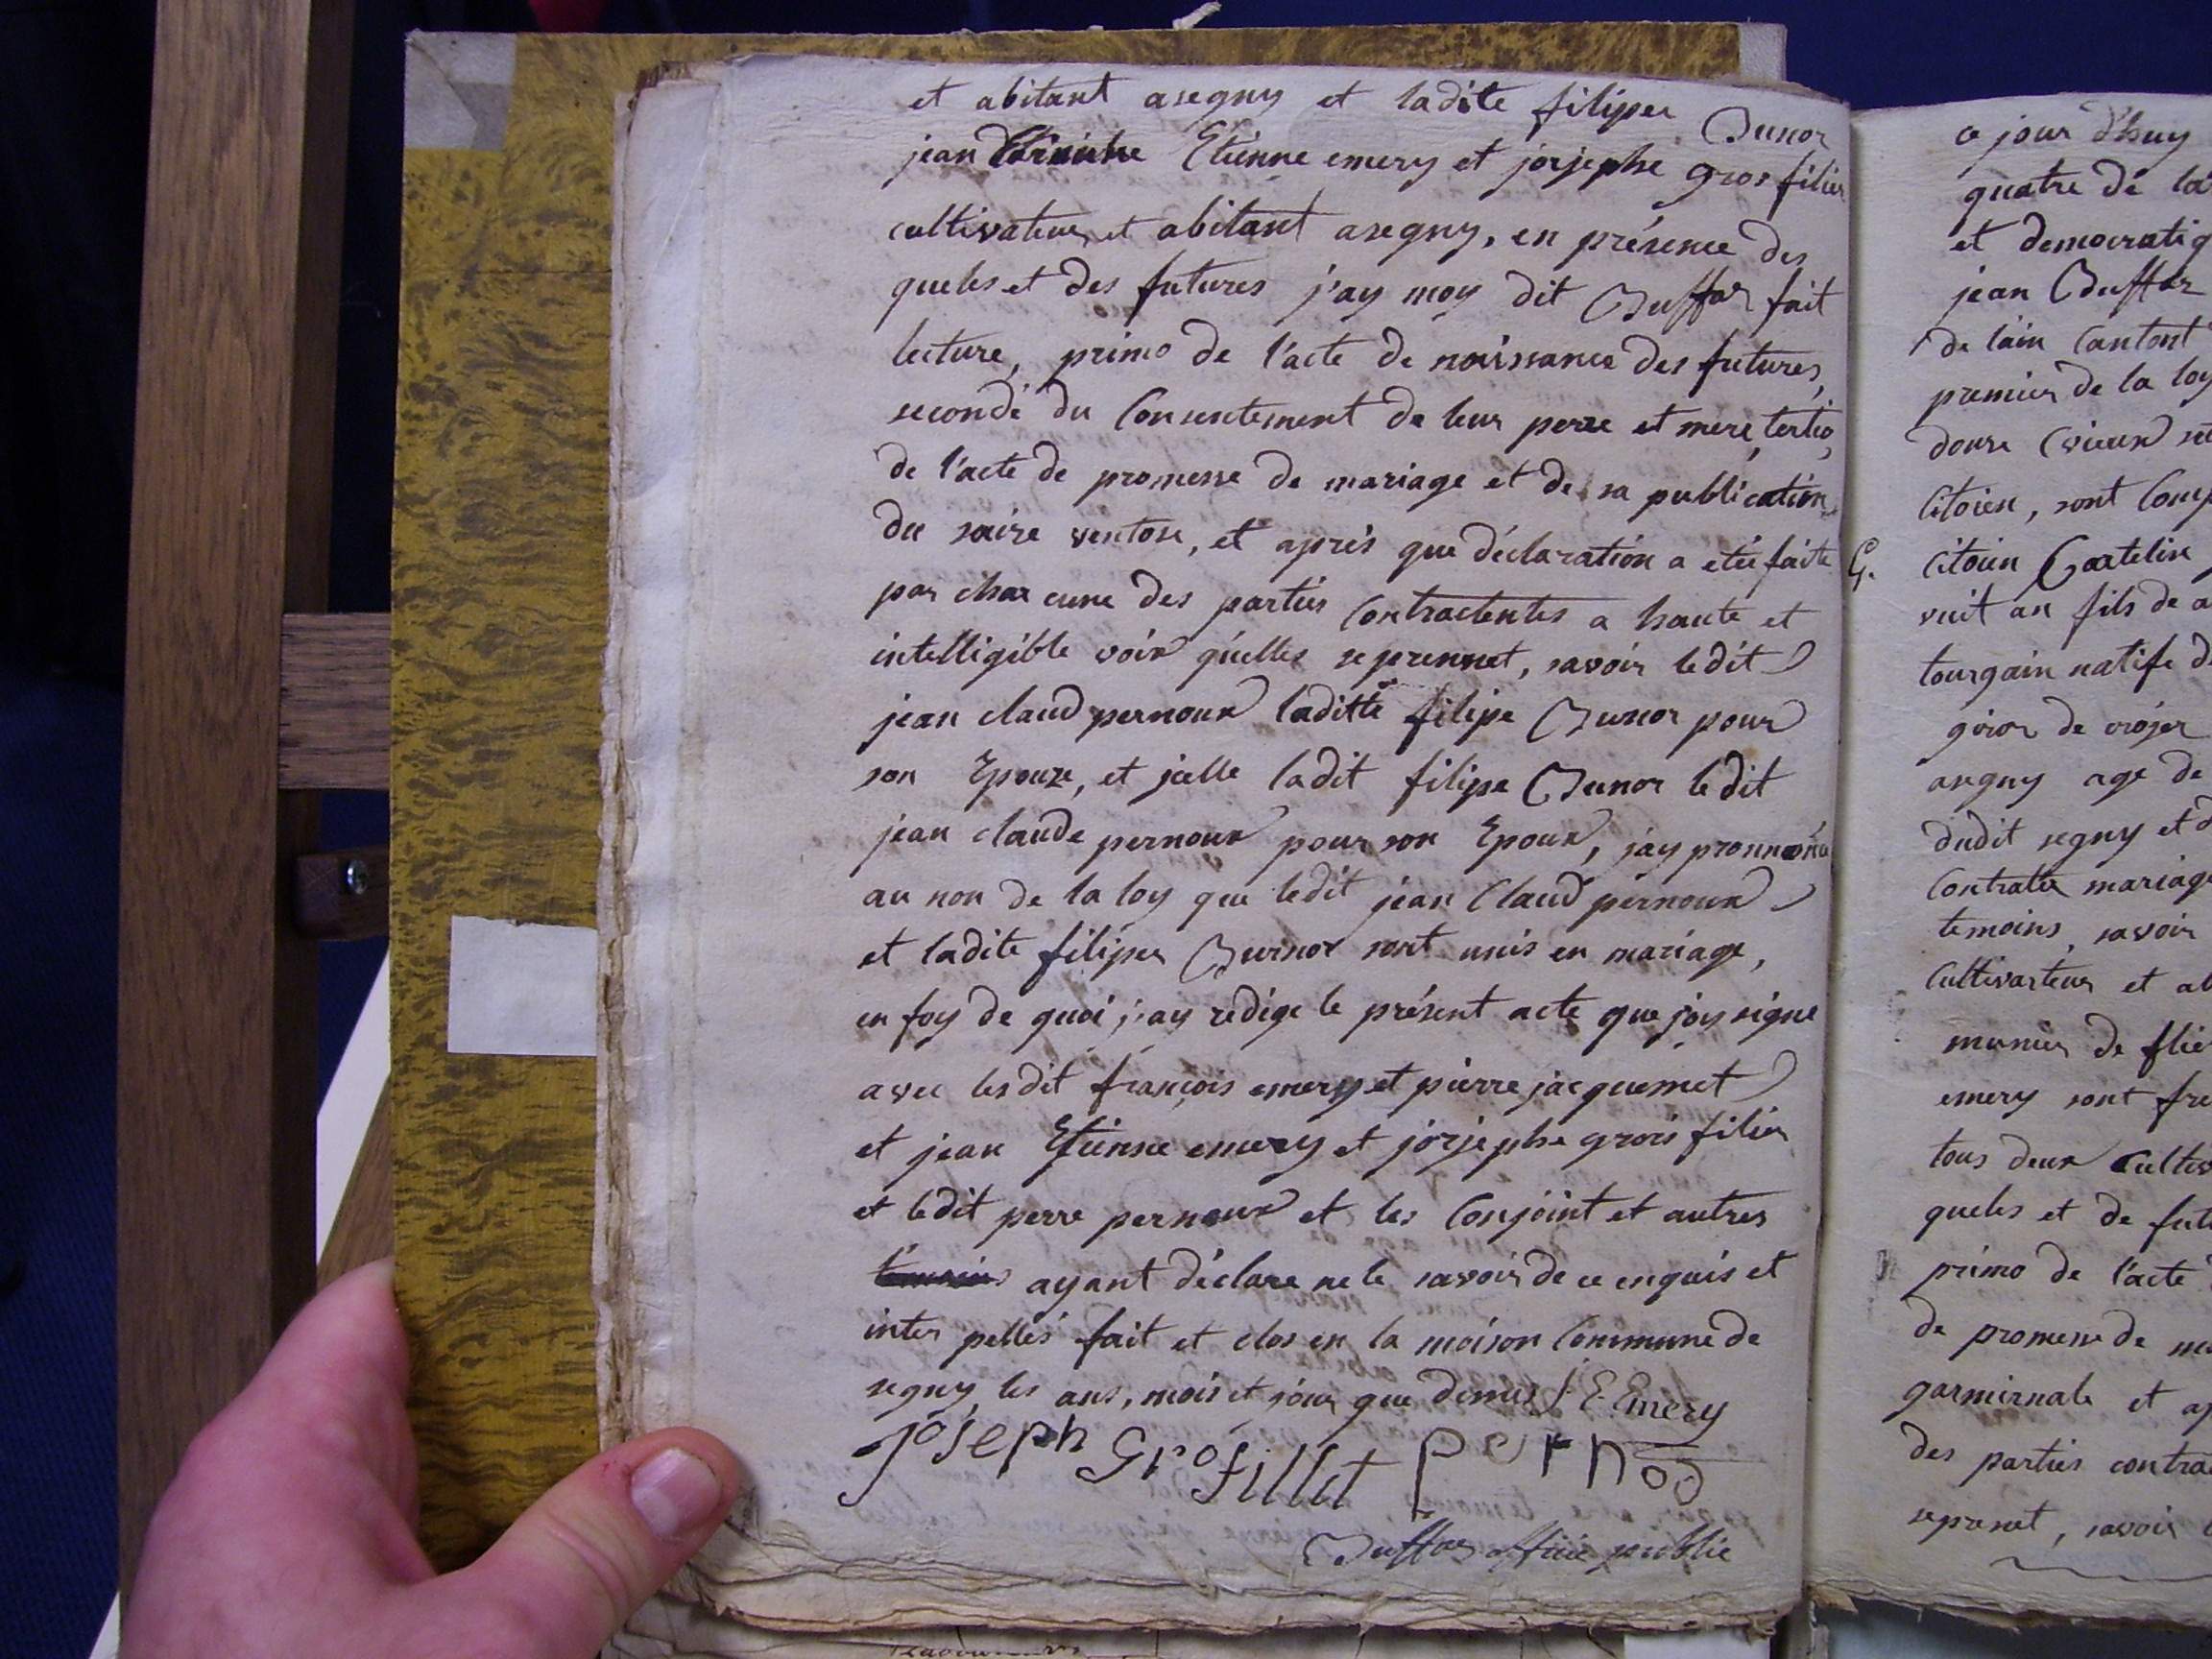 et abitant asegny et ladite filiper Dunor
jean Etienne emery et jorjephe gros filier
cultivateur et abitant asegny, en présence des
queles et des futures j'ay moy dit Duffor fait
lecture, primo de l'acte de naissance des futures,
secondé du Consentement de leur perre et mere, tertio,
de l'acte de promesse de mariage et de sa publication
du saize ventose, et aprés que déclaration a eteé faite
par chaxcune des parties Contractentes a haute et
intelligible voix quélles se prennet, savoir ledit
jean claud pernoux laditte filipe Dunor pour
son Epouze, et jcelle ladit filipe Dunor ledit
jean claude pernoux pour son Epoux, jay pronnoncé
au non de la loy que ledit jean Claud pernoux
et ladite filiper Durnor sont unis en mariage,
en foy de quoi j'ay redige le présent acte que j'ay signe
avec lesdit françois emery et pierre jacquemet
et jean Etienne emery et jorjephe grois filier
et ledit perre pernoux et les Conjoint et autres
temoins ayant déclare ne le savoir de ce enquis et
inter pellés fait et clos en la maison Commune de
segny les ans, mois et jour que demes J. E. Emery
joseph Grofillet pernod
Duffor officie public
ce jour d'huy
quatre de la
et democratiq
jean Duffor
de l'ain Cantont
premier de la loy
douze (vieux st
Citoien, sont Comp
G. Citoien Gatelin
vuit an fils de a
tourgain natife d
giror de vrojer
asegny age de
dudit segny et d
Contrater mariage
temoins, savoir
Cultivarteur et ab
munier de flie
emery sont fre
tous deux Cultiv
queles et de futu
primo de l'acte
de promesse de ma
garmirnale et ap
des parties contra
seprenet, savoir